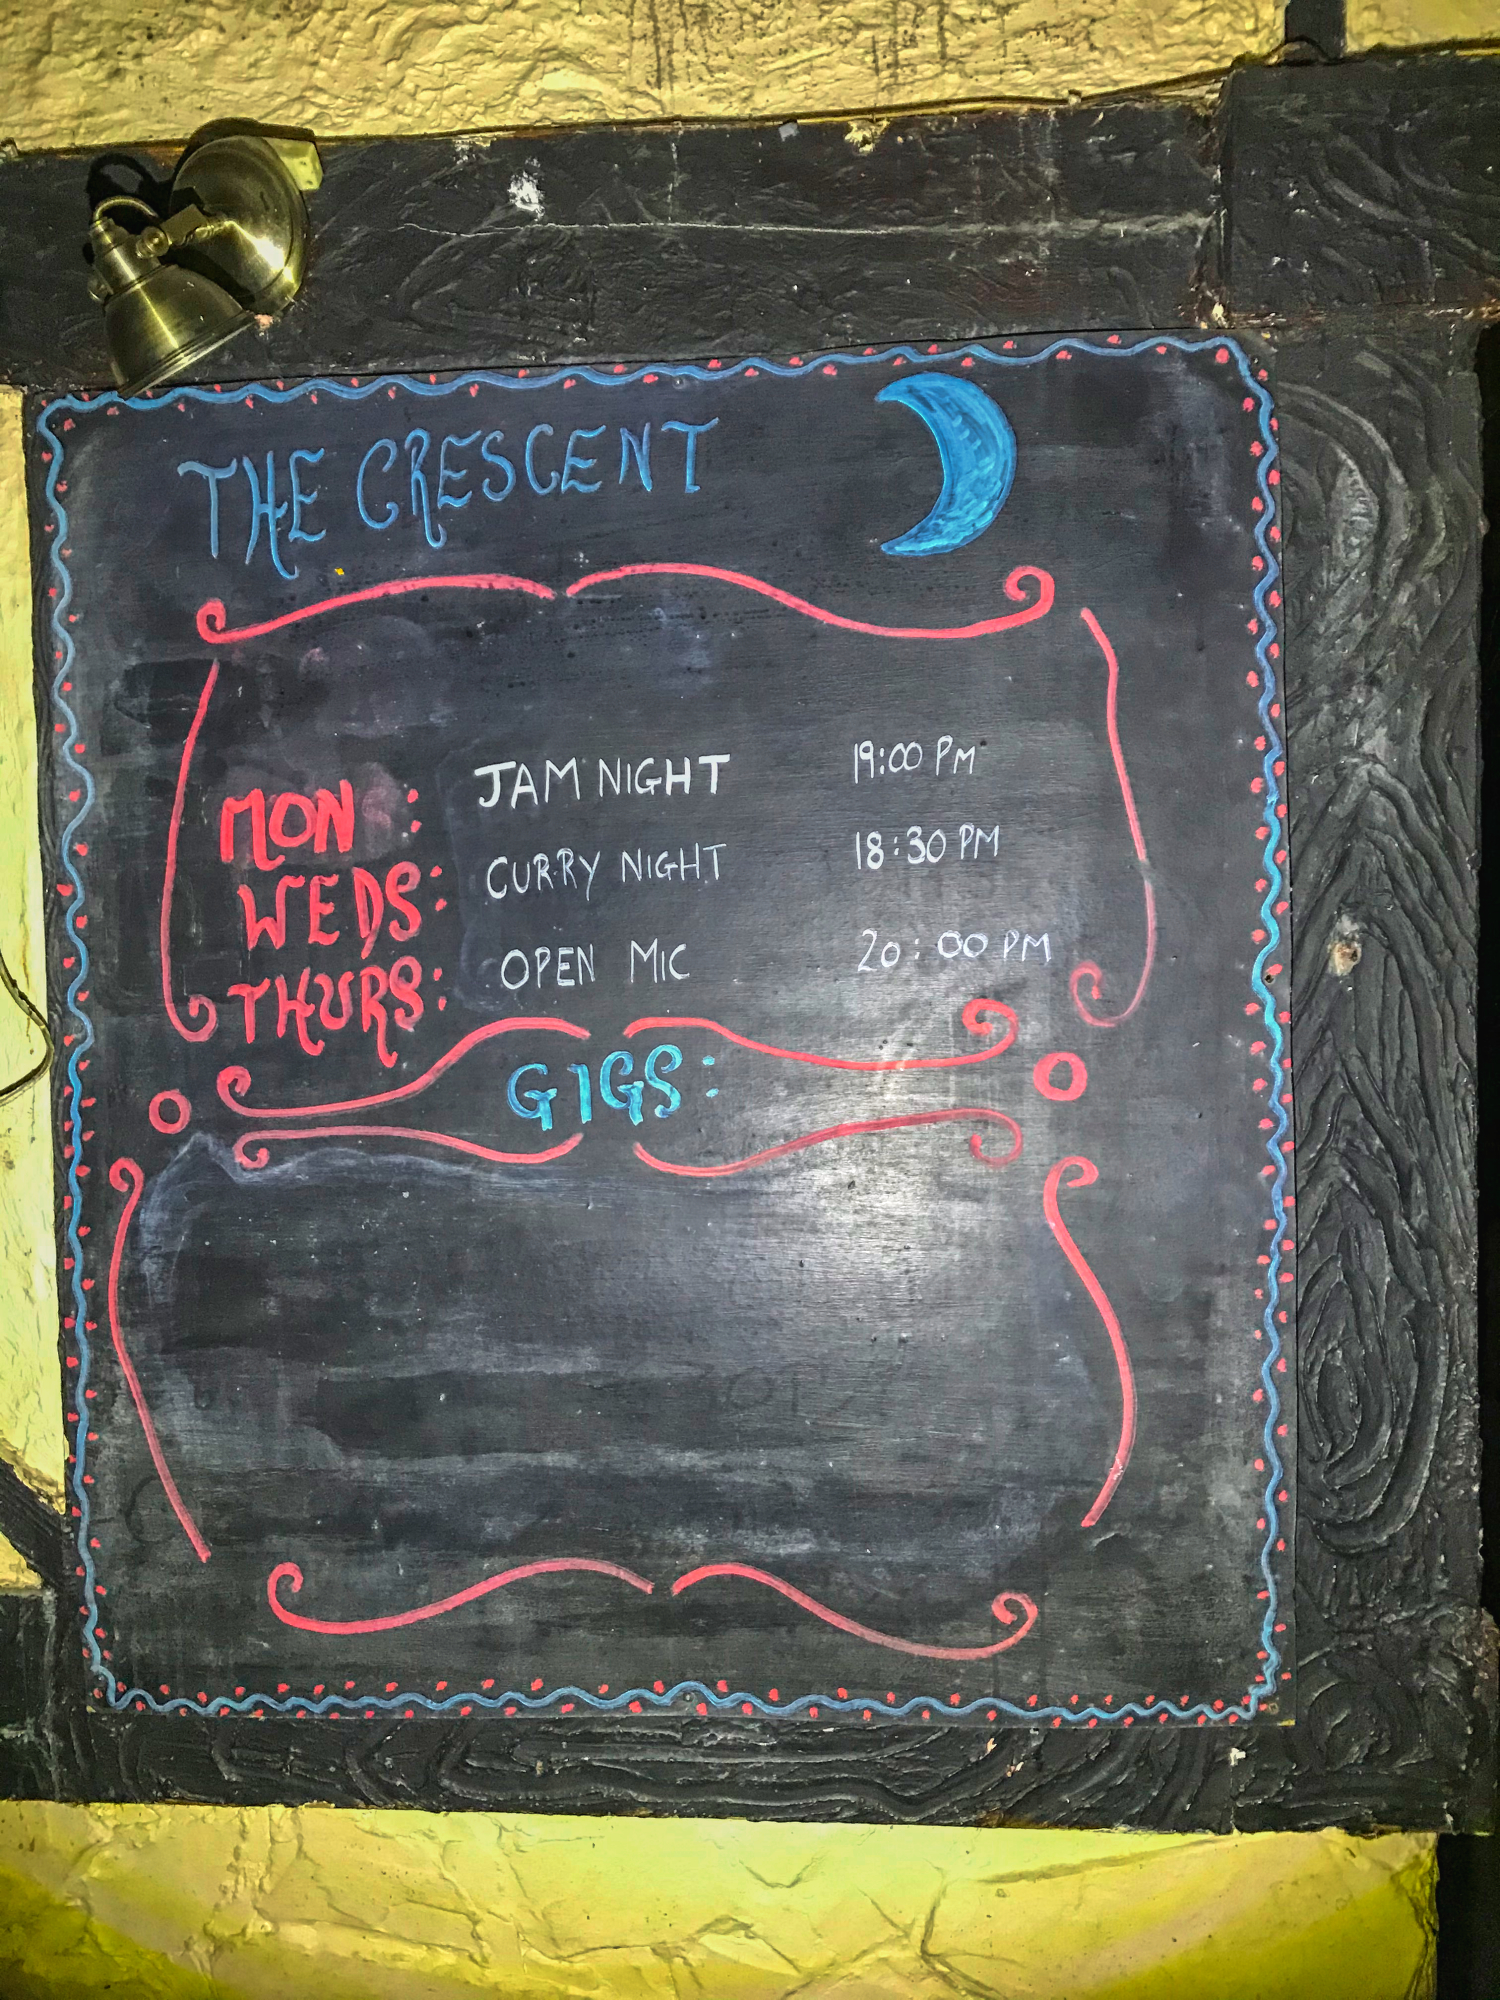 THE CRESCENT
MON : JAM NIGHT 19:00 PM
WEDS: CURRY NIGHT 18:30 PM
THURS: OPEN MIC 20:00 PM
GIGS: